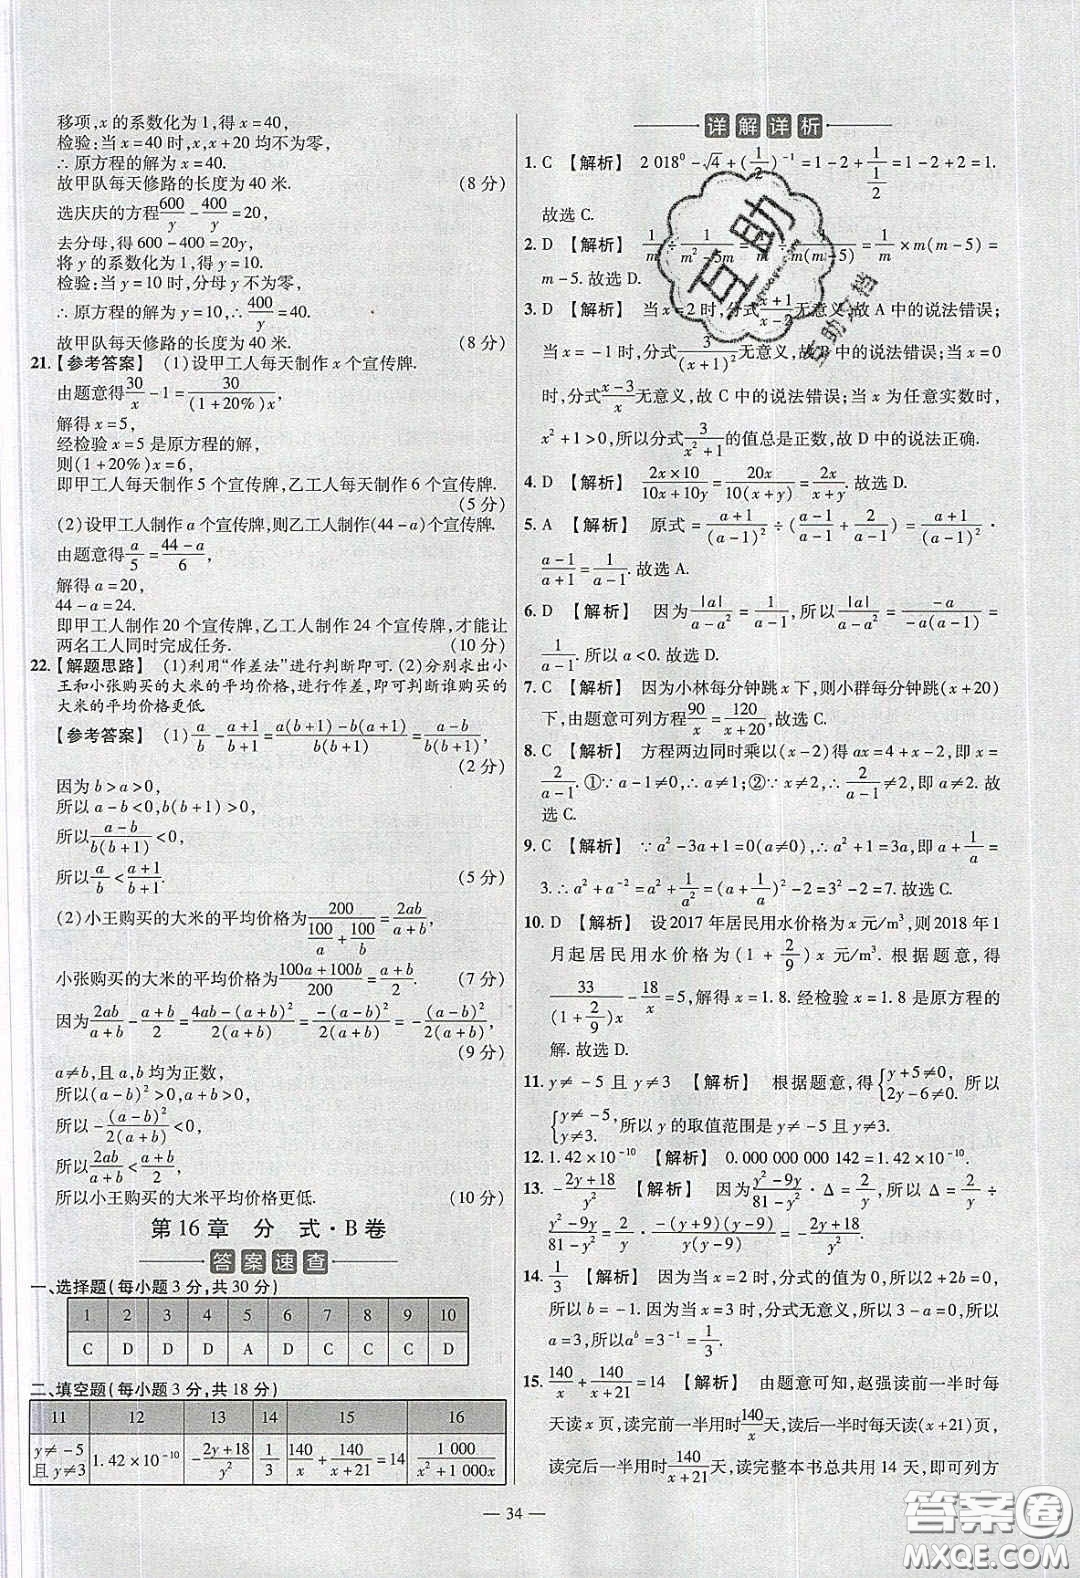 移项,x 的系数化为 1,得 x=40,
检验:当 x=40 时,x,x+20 均不为零,
∴ 原方程的解为 x=40.
故甲队每天修路的长度为 40 米. (8 分)
选庆庆的方程 600/y - 400/y = 20,
去分母,得 600-400=20y,
将 y 的系数化为 1,得 y=10.
检验:当 y=10 时,分母 y 不为零,
∴ 原方程的解为 y=10,∴ 400/y = 40.
故甲队每天修路的长度为 40 米. (8 分)
21.【参考答案】 (1)设甲工人每天制作 x 个宣传牌.
由题意得 30/x - 1 = 30/((1+20%)x),
解得 x=5,
经检验 x=5 是原方程的解,
则(1+20%)x=6,
即甲工人每天制作 5 个宣传牌,乙工人每天制作 6 个宣传牌.
(5 分)
(2)设甲工人制作 a 个宣传牌,则乙工人制作(44-a)个宣传牌.
由题意得 a/5 = (44-a)/6,
解得 a=20,
44-a=24.
即甲工人制作 20 个宣传牌,乙工人制作 24 个宣传牌,才能让
两名工人同时完成任务. (10 分)
22.【解题思路】 (1)利用“作差法”进行判断即可.(2)分别求出小
王和小张购买的大米的平均价格,进行作差,即可判断谁购买的
大米的平均价格更低.
【参考答案】 (1) a/b - (a+1)/(b+1) = (a(b+1)-b(a+1))/(b(b+1)) = (a-b)/(b(b+1)),
(2 分)
因为 b>a>0,
所以 a-b<0,b(b+1)>0,
所以 (a-b)/(b(b+1)) <0,
所以 a/b < (a+1)/(b+1). (5 分)
(2)小王购买的大米的平均价格为 200/(100/a + 100/b) = 2ab/(a+b),
小张购买的大米的平均价格为 (100a+100b)/200 = (a+b)/2. (7 分)
因为 2ab/(a+b) - (a+b)/2 = (4ab-(a+b)²)/(2(a+b)) = -(a-b)²/(2(a+b)) = - (a-b)²/(2(a+b)),
(9 分)
a≠b,且 a,b 均为正数,
所以(a-b)²>0,2(a+b)>0,
所以 - (a-b)²/(2(a+b)) <0,
所以 2ab/(a+b) < (a+b)/2.
所以小王购买的大米平均价格更低. (10 分)
第 16 章 分 式·B 卷
答案速查
一、选择题(每小题 3 分,共 30 分)
1 2 3 4 5 6 7 8 9 10
C D D D A D C C C D
二、填空题(每小题 3 分,共 18 分)
11 12 13 14 15 16
y≠-5 且 y≠3 1.42×10⁻¹⁰ -(2y+18)/y² 1/3 140/x + 140/(x+21) =14 1 000/(x²+1 000x)
详解详析
1. C 【解析】 2 018⁰-√4+(1/2)⁻¹=1-2+1/(1/2)=1-2+2=1.
故选 C.
2. D 【解析】 1/m ÷ 1/(m²-5m) = 1/m ÷ 1/(m(m-5)) = 1/m ×m(m-5)=
m-5.故选 D.
3. D 【解析】 当 x=2 时,分式 (x+1)/(x-2) 无意义,故 A 中的说法错误;
当 x=-1 时,分式 3/(x+1)² 无意义,故 B 中的说法错误;当 x=0
时,分式 (x-3)/x 无意义,故 C 中的说法错误;当 x 为任意实数时,
x²+1>0,所以分式 3/(x²+1) 的值总是正数,故 D 中的说法正确.
4. D 【解析】 (2x×10)/(10x+10y) = 20x/(10(x+y)) = 2x/(x+y).故选 D.
5. A 【解析】 原式= (a+1)/(a-1)² ÷((a-1)/(a-1) + 2/(a-1))= (a+1)/(a-1)² ·
(a-1)/(a+1) = 1/(a-1).故选 A.
6. D 【解析】 因为 |a|/(a-a²) = 1/(a-1),所以 |a|/(a-a²) = -a/(a(a-1)) =
1/(a-1).所以 a<0.故选 D.
7. C 【解析】 因为小林每分钟跳 x 下,则小群每分钟跳(x+20)
下,由题意可列方程 90/x = 120/(x+20).故选 C.
8. C 【解析】 方程两边同时乘以(x-2)得 ax=4+x-2,即 x=
2/(a-1).①∵ a-1≠0,∴ a≠1;②∵ x≠2,∴ 2/(a-1) ≠2,即 a≠2.故
选 C.
9. C 【解析】 ∵ a²-3a+1=0(a≠0),∴ a²+1=3a,即 a+1/a=
3.∴ a²+a⁻²=a²+1/a²=(a+1/a)²-2=3²-2=7.故选 C.
10. D 【解析】 设 2017 年居民用水价格为 x 元/m³,则 2018 年 1
月起居民用水价格为(1+2/9)x 元/m³.根据题意,得
33/((1+2/9)x) - 18/x =5,解得 x=1.8.经检验 x=1.8 是原方程的
解.故选 D.
11. y≠-5 且 y≠3 【解析】 根据题意,得{y+5≠0, 2y-6≠0. 所以
{y≠-5, y≠3. 所以 y 的取值范围是 y≠-5 且 y≠3.
12. 1.42×10⁻¹⁰ 【解析】 0.000 000 000 142=1.42×10⁻¹⁰.
13. -(2y+18)/y² 【解析】 因为 (y²-9y)/(81-y²) ·Δ= 2/y,所以 Δ= 2/y ÷
(y²-9y)/(81-y²) = 2/y · -(y+9)(y-9)/(y(y-9)) = - (2y+18)/y².
14. 1/3 【解析】 因为当 x=2 时,分式的值为 0,所以 2+2b=0,
所以 b=-1.因为当 x=3 时,分式无意义,所以 3-a=0,所以
a=3,所以 aᵇ=3⁻¹=1/3.
15. 140/x + 140/(x+21) =14 【解析】 由题意可知,赵强读前一半时每
天读 x 页,读完前一半用时 140/x 天,读后一半时每天读(x+21)页,
读完后一半用时 140/(x+21) 天,读完整本书总共用 14 天,即可列方
— 34 —
互助
互助文档
答案圈
MXQE.COM